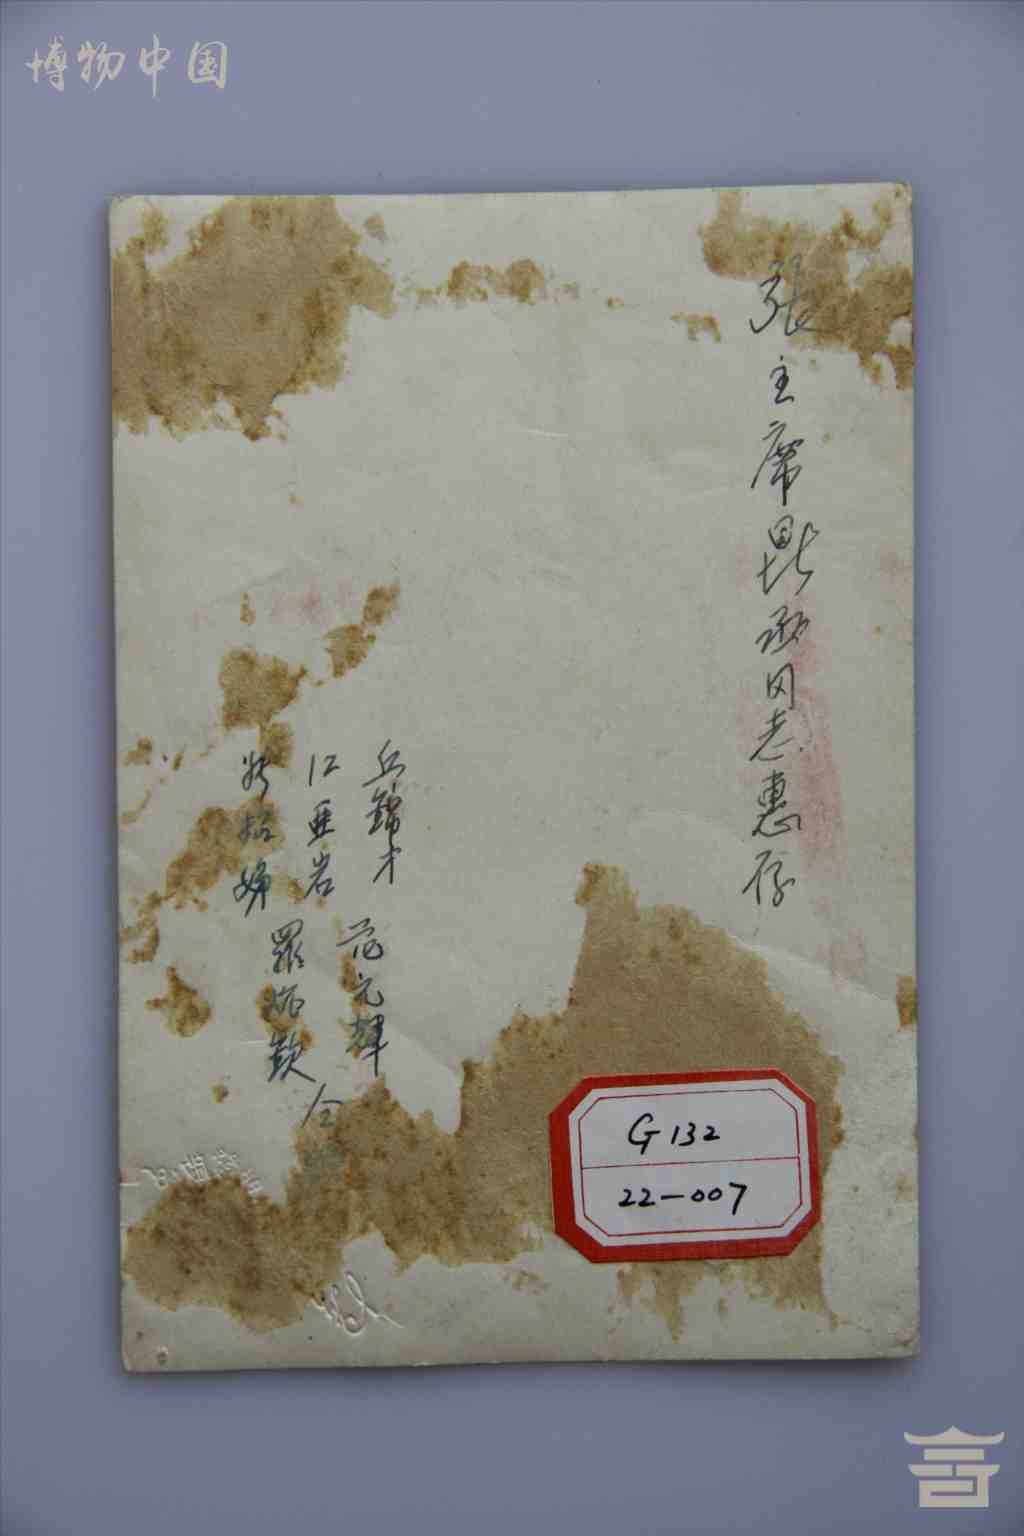 博物中国
張主席鼎丞同志惠存
丘錦才 范元輝
江亜岩 羅炳欽 仝
招娣
G132
22-007